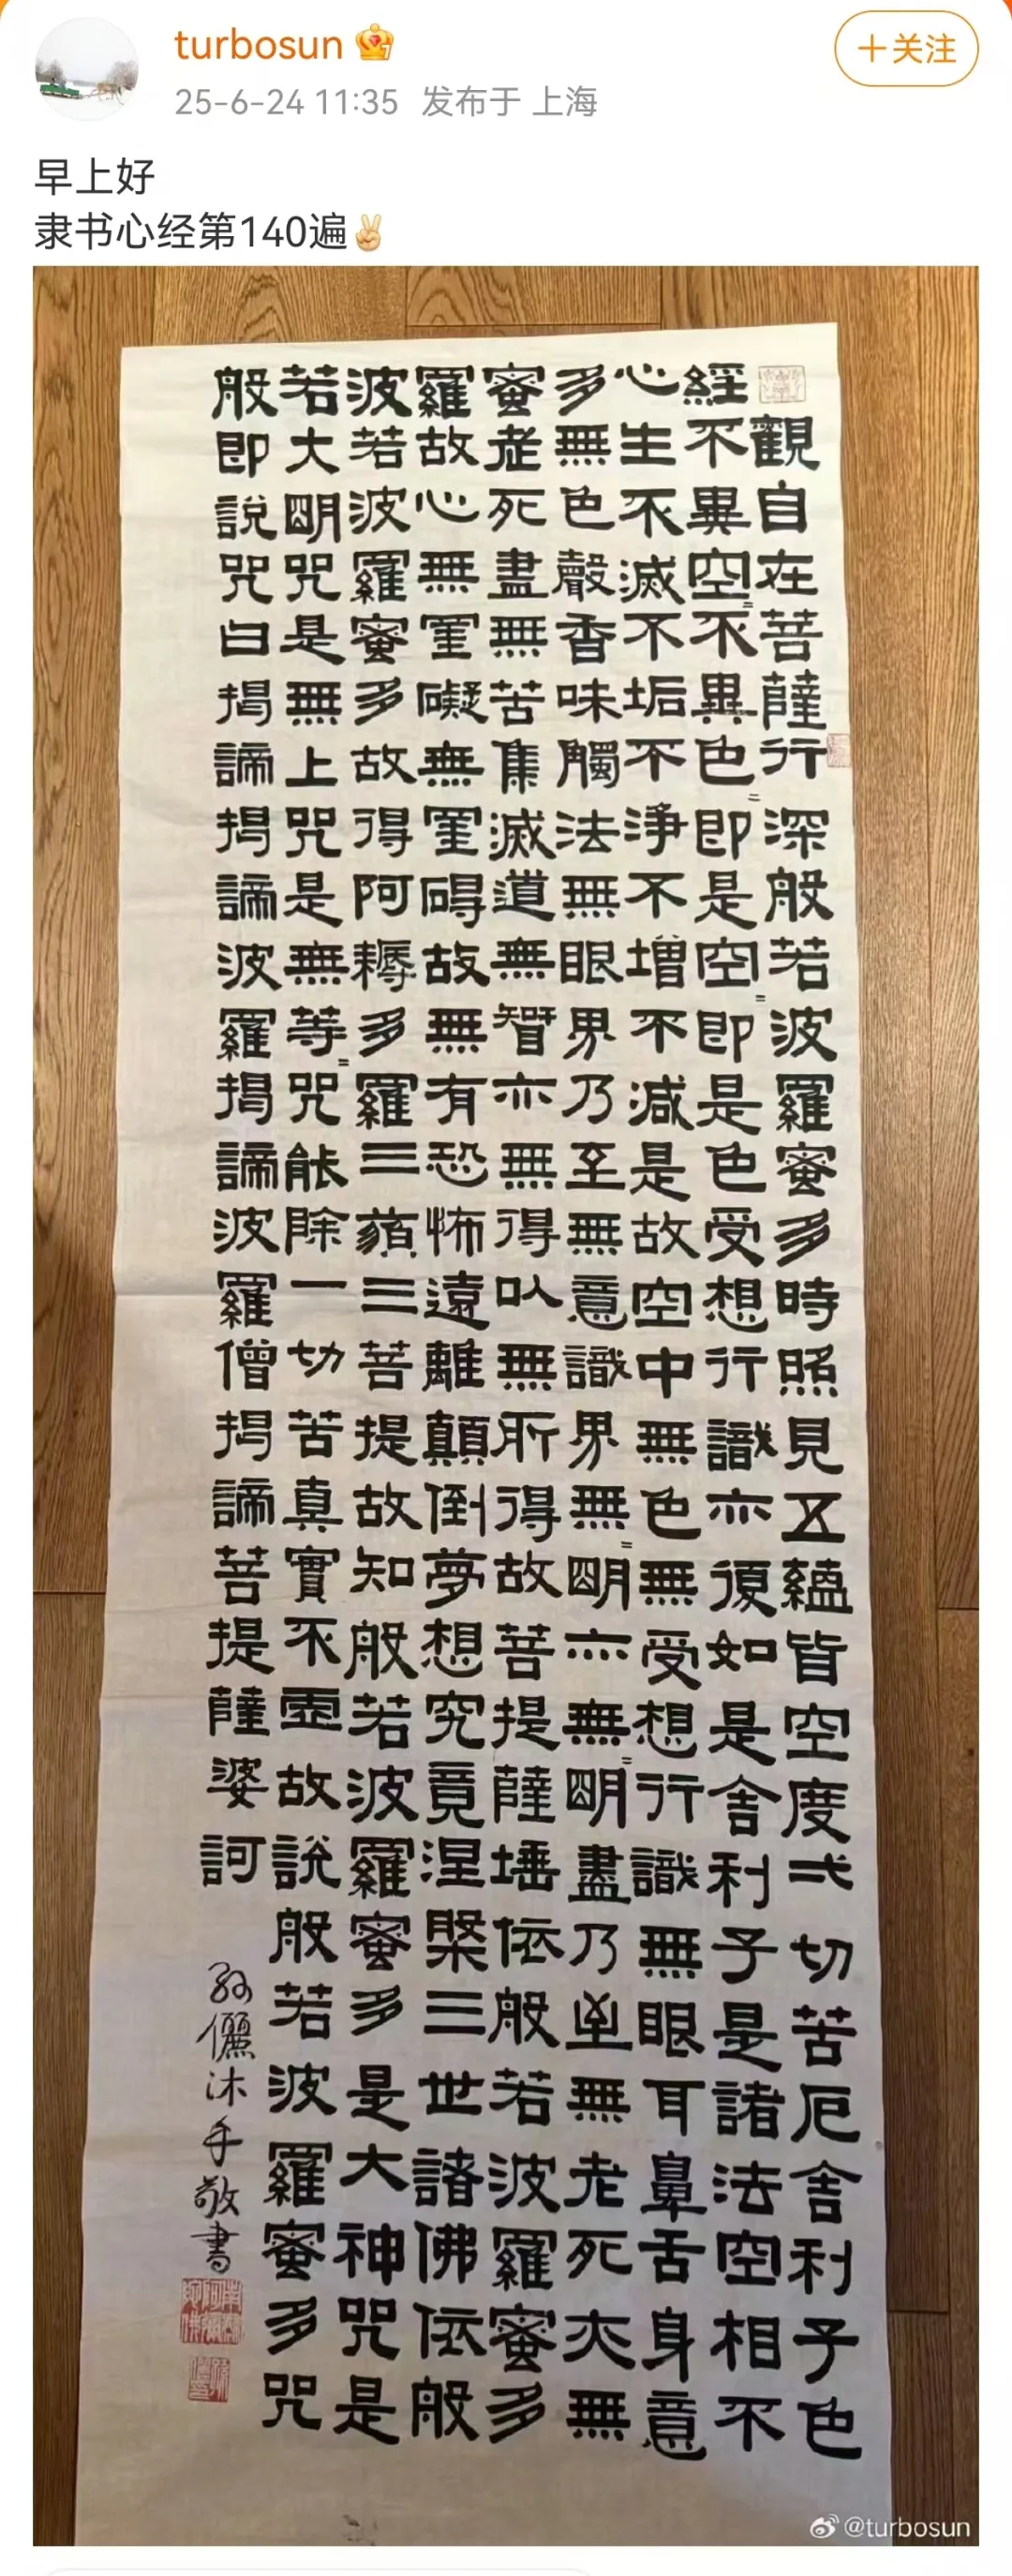 turbosun
+关注
25-6-24 11:35 发布于 上海
早上好
隶书心经第140遍✌
般若波羅蜜多心經
觀自在菩薩行深般若波羅蜜多時照見五蘊皆空度弌切苦厄舍利子色
不異空=不異色=即是空=即是色受想行識亦復如是舍利子是諸法空相不
生不滅不垢不淨不增不減是故空中無色無受想行識無眼耳鼻舌身意
無色聲香味觸法無眼界乃至無意識界無=明亦無=明盡乃至無老死亦無
老死盡無苦集滅道無智亦無得以無所得故菩提薩埵依般若波羅蜜多
故心無罣礙無罣碍故無有恐怖遠離顛倒夢想究竟涅槃三世諸佛依般
若波羅蜜多故得阿耨多羅三藐三菩提故知般若波羅蜜多是大神咒是
大明咒是無上咒是無等=咒能除一切苦真實不虛故說般若波羅蜜多咒
即說咒曰揭諦揭諦波羅揭諦波羅僧揭諦菩提薩婆訶
孫儷沐手敬書
@turbosun